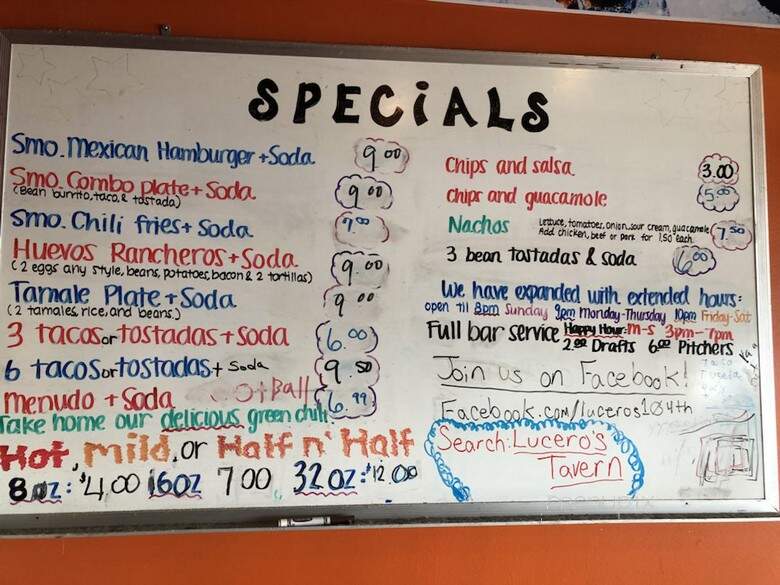 SPECiALS
Smo. Mexican Hamburger + Soda 9.00
Smo. Combo plate + Soda 9.00
(Bean burrito, taco, & tostada)
Smo. Chili fries + Soda 9.00
Huevos Rancheros + Soda 9.00
(2 eggs any style, beans, potatoes, bacon & 2 tortillas)
Tamale Plate + Soda 9.00
(2 tamales, rice, and beans)
3 tacos or tostadas + soda 6.00
6 tacos or tostadas + Soda 9.50
menudo + Soda 6.99
Take home our delicious green chili
Hot, mild, or Half n' Half
8 oz: $4.00 16oz 7.00 32oz: $12.00
Chips and salsa 3.00
Chips and guacamole 5.00
Nachos Lettuce, tomatoes, onion, sour cream, guacamole 7.50
Add chicken, beef or pork for 1.50 each
3 bean tostadas & soda 6.00
We have expanded with extended hours:
open til 8pm Sunday 9pm Monday-Thursday 10pm Friday-Sat
Full bar service Happy Hour: m-s 3pm-7pm
2.00 Drafts 6.00 Pitchers
Join us on Facebook!
Facebook.com/luceros104th
Search: Lucero's
Tavern